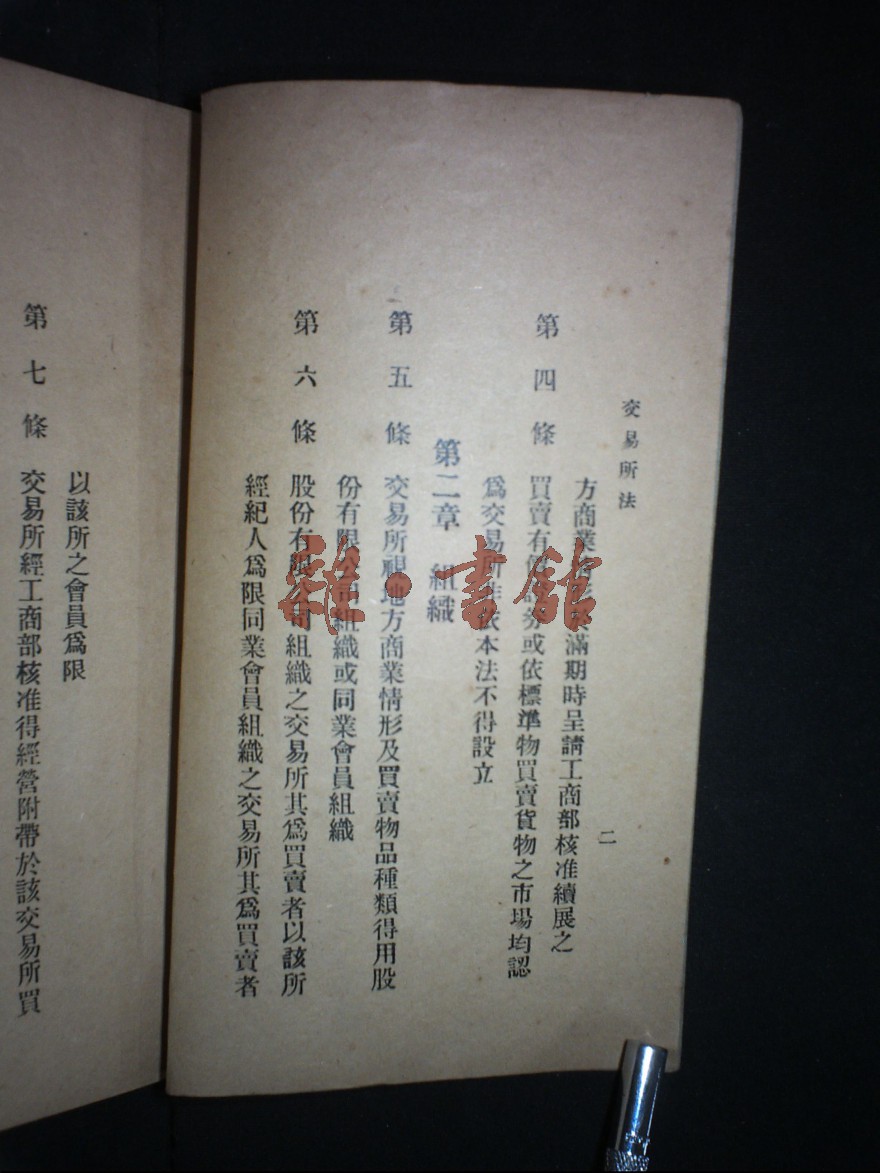 交易所法
二
方商業情形於滿期時呈請工商部核准續展之
第四條 買賣有價證券或依標準物買賣貨物之市場均認
爲交易所非依本法不得設立
第二章 組織
第五條 交易所視地方商業情形及買賣物品種類得用股
份有限公司組織或同業會員組織
第六條 股份有限公司組織之交易所其爲買賣者以該所
經紀人爲限同業會員組織之交易所其爲買賣者
以該所之會員爲限
第七條 交易所經工商部核准得經營附帶於該交易所買
雜·書館